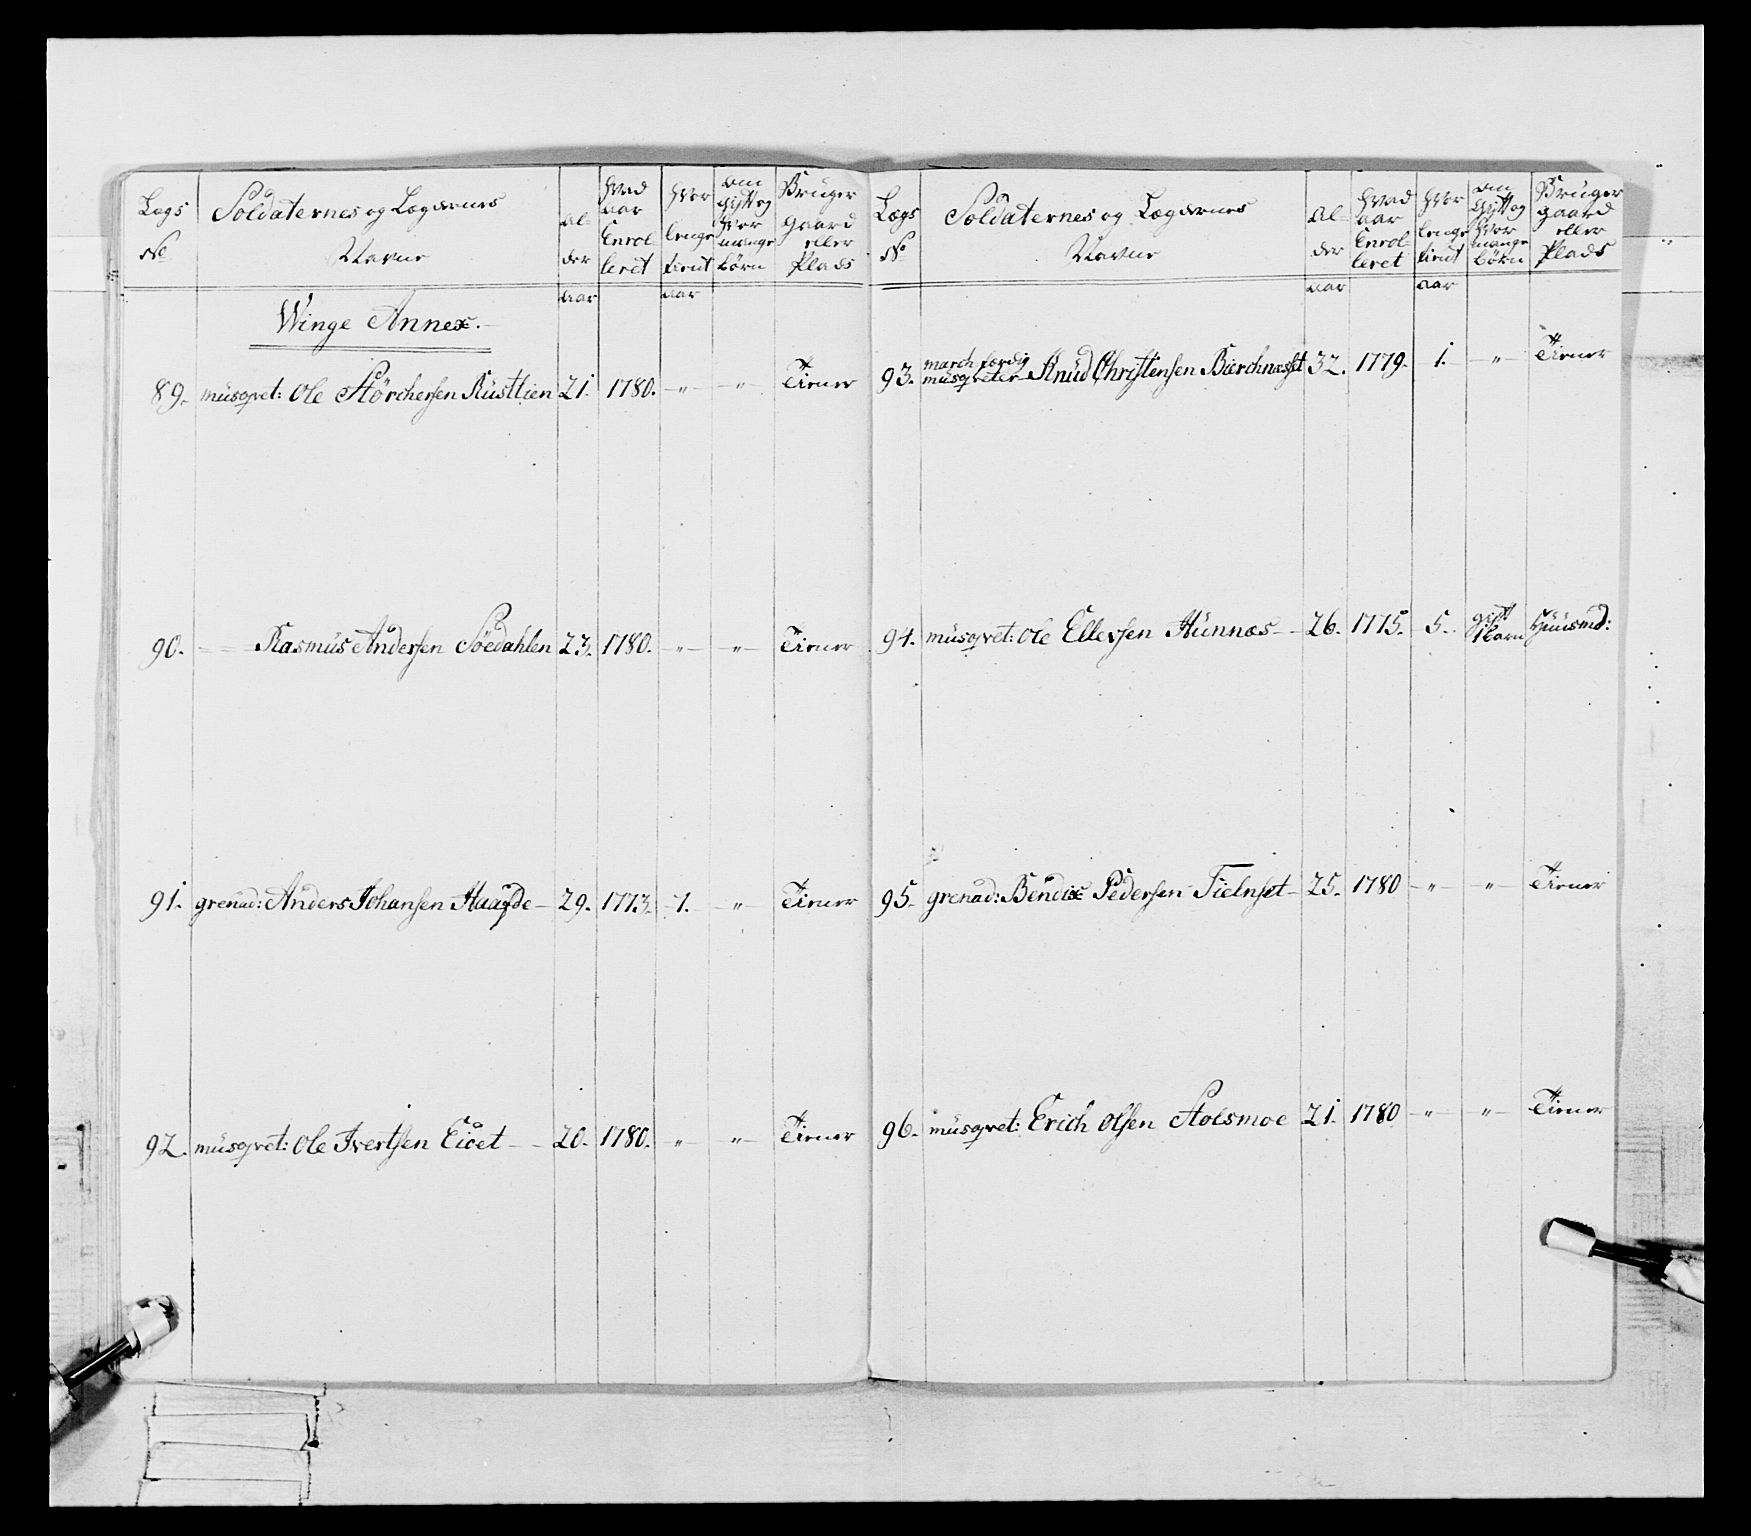 Lægs No | Soldaternes og Lægernes Navne | Alder | hvad aar Enrolleret | hvor lenge tient | om gift og hvor mange børn | Bruger gaard eller Plads
aar | aar
Winge Annex.
89. musqvet: Ole Størchersen Rusttien 21. 1780. " " Tiener
90. Rasmus Andersen Söedahlen 23. 1780. " " Tiener
91. grenad: Anders Johansen Haagde 29. 1773. 7. " Tiener
92. musqvet: Ole Ivertsen Eidet 20. 1780. " " Tiener
Lægs No | Soldaternes og Lægernes Navne | Alder | hvad aar Enrolleret | hvor lenge tient | om gift og hvor mange børn | Bruger gaard eller Plads
aar | aar
march færdig
93. musqveter Knud Christensen Bierchnæsset 32. 1779. 1. " Tiener
94. musqvet: Ole Ellevsen Hunnæs 26. 1775. 5. gift 1 barn Huusmd:
95. grenad: Bendix Pedersen Tielnset 25. 1780 " " Tiener
96. musqvet: Erich Olsen Stolsmoe 21. 1780 " " Tiener